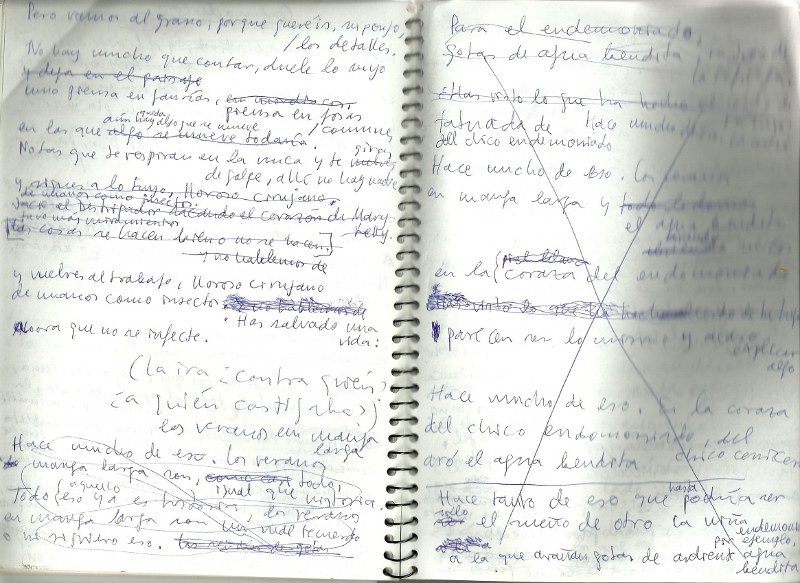 Pero vamos al grano, porque queréis, supongo,
/ los detalles.
No hay mucho que contar, duele lo suyo
y deja en el paisaje
uno piensa en
piensa en fosas
/ comunes
en las que aún queda algo que se mueve
algo se mueve todavía.
Notas que te respiran en la nuca y te giras
de golpe, allí no hay nadie
y sigues a lo tuyo, lloroso cirujano
de manos como insectos.
Jack el Destripador sacando el corazón de Mary
Kelly.
tuvo más miramientos
las cosas se hacen bien o no se hacen
y no hablemos de
y vuelves al trabajo, lloroso cirujano
de manos como insectos.
Has salvado una
vida:
Ahora que no se infecte.
(la ira ¿contra quién,
¿a quién castigaba?)
los veranos en manga
larga
Hace mucho de eso. Los veranos
en manga larga son,
todo,
Todo eso ya es historia
aquello
igual que historia.
Los veranos
en manga larga son un mal recuerdo
o ni siquiera eso.
Para el endemoniado,
gotas de agua bendita,
Has visto lo que ha hecho
tatuada de
Hace mucho de
del chico endemoniado
Hace mucho de eso. Los veranos
en manga larga y
el agua bendita
en la (coraza del endemoniado
piel
parecen ser lo mismo y acaso
explican
algo
Hace mucho de eso. En la coraza
del chico endemoniado, del
chico
aró el agua bendita
Hace tanto de eso que hasta podría ser
el sueño de otro
la niña
endemoniada
por ejemplo,
a la que araran gotas de ardiente agua
bendita